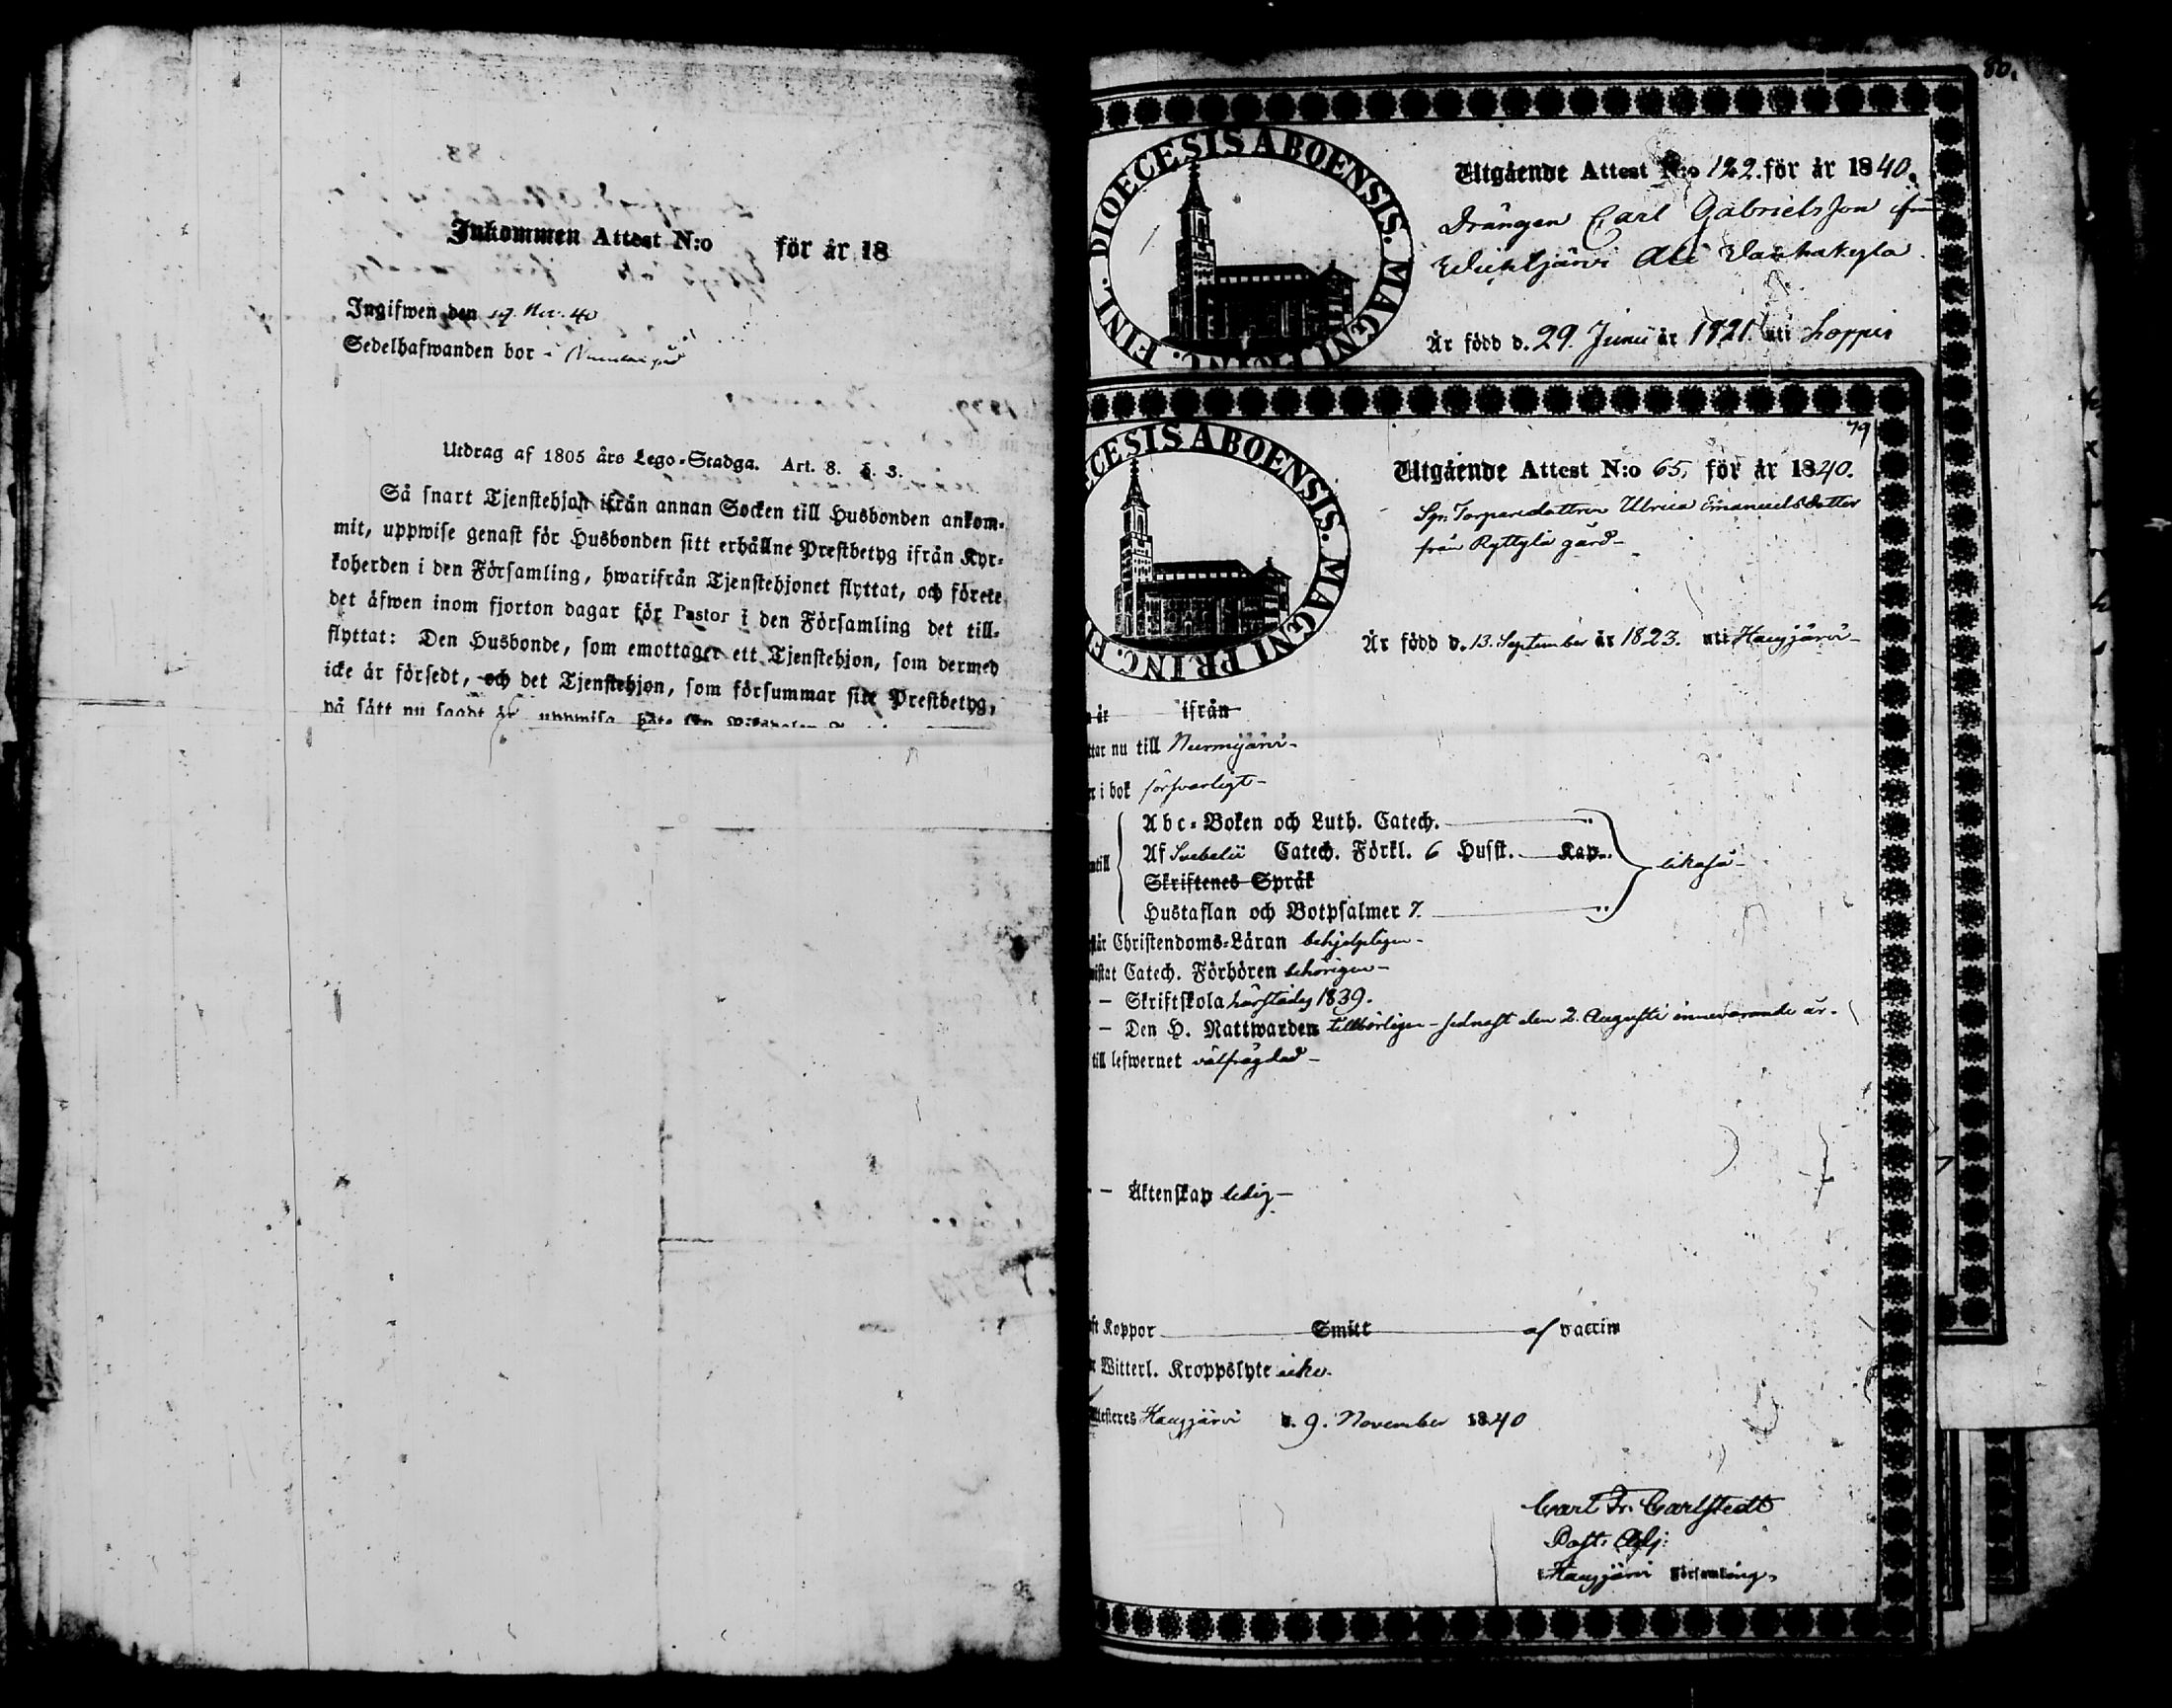 Inkommen Attest N:o för år 18
Ingifwen den 19 Nov. 40
Sedelhafwanden bor i
Utdrag af 1805 års Lego-Stadga. Art. 8. §. 3.
Så snart Tjenstehjon ifrån annan Socken till Husbonden ankom-
mit, uppwise genast för Husbonden sitt erhållne Prestbetyg ifrån Kyr-
koherden i den Församling, hwarifrån Tjenstehjonet flyttat, och förete
det äfwen inom fjorton dagar för Pastor i den Församling det till-
flyttat: Den Husbonde, som emottager ett Tjenstehjon, som dermed
icke är försedt, och det Tjenstehjon, som försummar sitt Prestbetyg,
på sätt nu sagdt är, uppwisa, böte
80.
DIOECESIS ABOENSIS. MAGNI PRINC. FINL.
Utgående Attest N:o 122. för år 1840.
Drängen Carl Gabrielsson från
Wichtjärvi Ali Vanhakylä.
Är född d. 29. Junii år 1821. uti Loppis
79
CESIS ABOENSIS. MAGNI PRINC. F
Utgående Attest N:o 65, för år 1840.
Sqn. Torparedottren Ulrica Emanuelsdotter
från Ryttylä gård
Är född d. 13. September år 1823. uti Hausjärvi
år ifrån
ttar nu till Nurmijärvi
r i bok försvarligt
Abc-Boken och Luth. Catech.
ntill Af Svebelii Catech. Förkl. 6 Hufst. Kap. likaså
Skriftenes Språk
Hustaflan och Botpsalmer 7.
står Christendoms-Läran behjelpligen
wistat Catech. Förhören behörigen
— Skriftskola härstädes 1839.
— Den H. Nattwarden tillbörligen - sednast den 2. Augusti innevarande år.
till lefwernet välfrägdad
— Äktenskap ledig
ft Koppor Smitt af vaccin
r Witterl. Kroppslyte icke.
Attesteres Hausjärvi d. 9. November 1840
Carl Fr. Carlstedt
Past. Adj.
i Hausjärvi Församling.